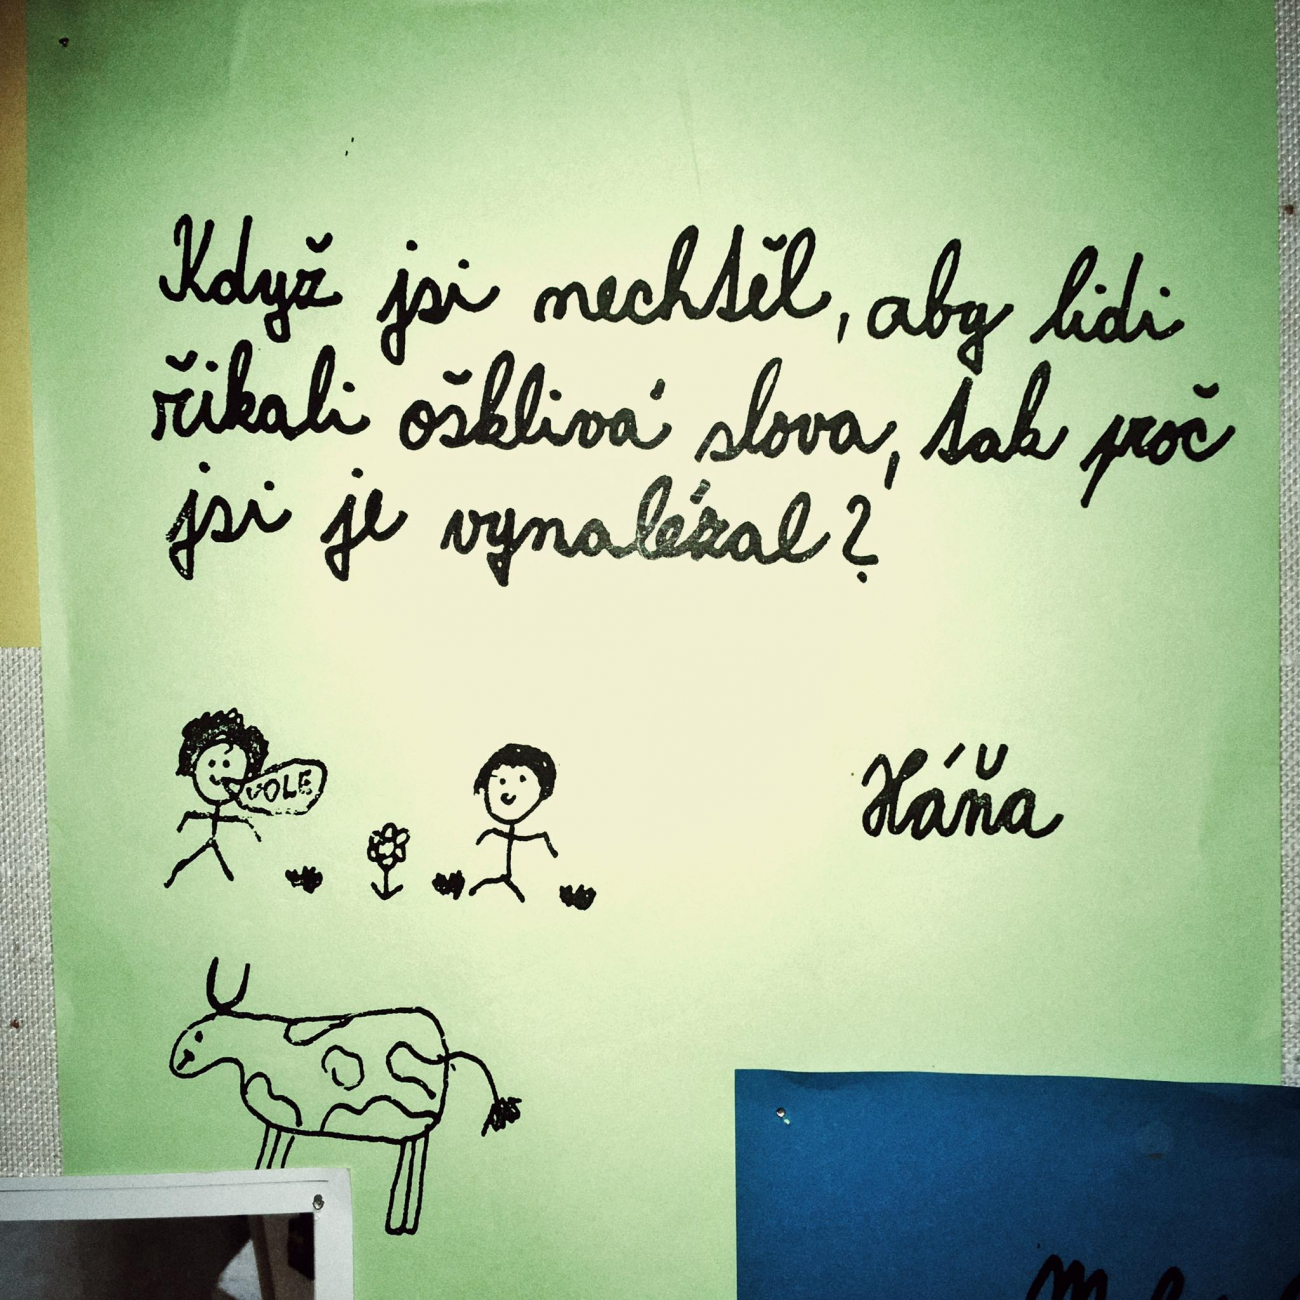 Když jsi nechtěl, aby lidi
řikali ošklivá slova, tak proč
jsi je vynalézal?
VOLE
Háňa